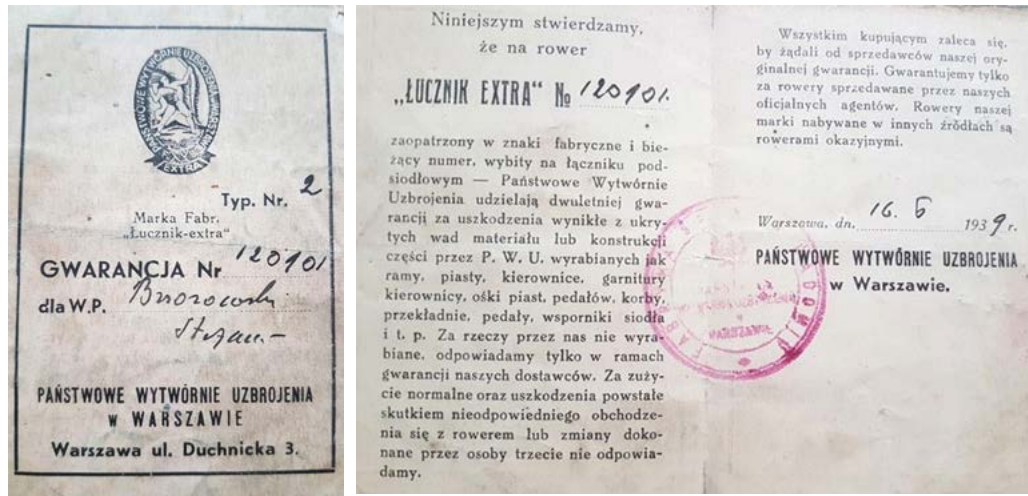 PAŃSTWOWE WYTWÓRNIE UZBROJENIA WARSZAWA
EXTRA
Typ. Nr. 2
Marka Fabr.
„Łucznik-extra"
GWARANCJA Nr 120101
dla W.P. Brzozowski
Stefan
PAŃSTWOWE WYTWÓRNIE UZBROJENIA
w WARSZAWIE
Warszawa ul. Duchnicka 3.
Niniejszym stwierdzamy,
że na rower
„ŁUCZNIK EXTRA" № 120101.
zaopatrzony w znaki fabryczne i bie-
żący numer, wybity na łączniku pod-
siodłowym — Państwowe Wytwórnie
Uzbrojenia udzielają dwuletniej gwa-
rancji za uszkodzenia wynikłe z ukry-
tych wad materiału lub konstrukcji
części przez P. W. U. wyrabianych jak
ramy, piasty, kierownice, garnitury
kierownicy, ośki piast, pedałów, korby,
przekładnie, pedały, wsporniki siodła
i t. p. Za rzeczy przez nas nie wyra-
biane, odpowiadamy tylko w ramach
gwarancji naszych dostawców. Za zuży-
cie normalne oraz uszkodzenia powstałe
skutkiem nieodpowiedniego obchodze-
nia się z rowerem lub zmiany doko-
nane przez osoby trzecie nie odpowia-
damy.
Wszystkim kupującym zaleca się,
by żądali od sprzedawców naszej ory-
ginalnej gwarancji. Gwarantujemy tylko
za rowery sprzedawane przez naszych
oficjalnych agentów. Rowery naszej
marki nabywane w innych źródłach są
rowerami okazyjnymi.
Warszawa, dn. 16. 5 1939 r.
PAŃSTWOWE WYTWÓRNIE UZBROJENIA
w Warszawie.
WARSZAWIE